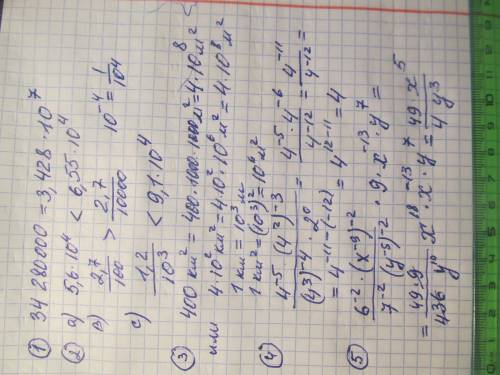 ① 34 280000 = 3,428 · 10⁷
② а) 5,6·10⁴ < 6,55·10⁴
в) 2,7/100 > 2,7/10000 10⁻⁴ = 1/10⁴
с) 1,2/10³ < 9,1·10⁴
③ 400 км² = 400·1000·1000 м² = 4·10⁸ м²
или 4·10² км² = 4·10²·10⁶ м² = 4·10⁸ м²
1 км = 10³ м
1 км² = (10³)² = 10⁶ м²
④ 4⁻⁵·(4²)⁻³/(4³)⁻⁴·2⁰ = 4⁻⁵·4⁻⁶/4⁻¹² = 4⁻¹¹/4⁻¹² =
= 4⁻¹¹⁻⁽⁻¹²⁾ = 4¹²⁻¹¹ = 4
⑤ 6⁻²·(x⁻⁹)⁻²/7⁻²(y⁻⁵)⁻² · 9·x⁻¹³·y⁷ =
= 49·9/436 y¹⁰ x¹⁸·x⁻¹³·y⁷ = 49·x⁵/4y³